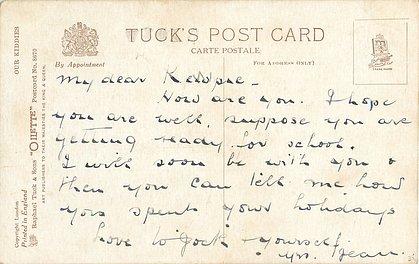 TUCK'S POST CARD
CARTE POSTALE
By Appointment
FOR ADDRESS ONLY
TRADE MARK
OUR KIDDIES
Raphael Tuck & Sons' "OILETTE" Postcard No. 8870
ART PUBLISHERS TO THEIR MAJESTIES THE KING & QUEEN.
Copyright London
Printed in England
My dear Kewpie -
How are you. I hope
you are well, suppose you are
getting ready for school.
I will soon be with you &
then you can tell me how
you spent your holidays
Love to Jock & yourself.
yrs. Jean.